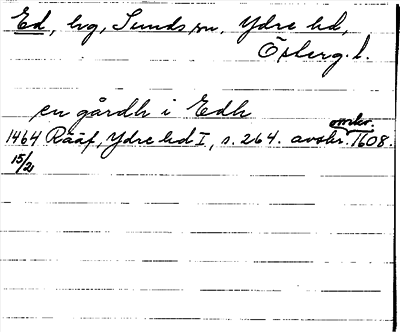 Ed, hg, Sunds sn, Ydre hd,
Österg. l.
en gårdh i Edh
omkr.
1464 Rääf, Ydre hd I, s. 264. avskr. 1608.
15/2